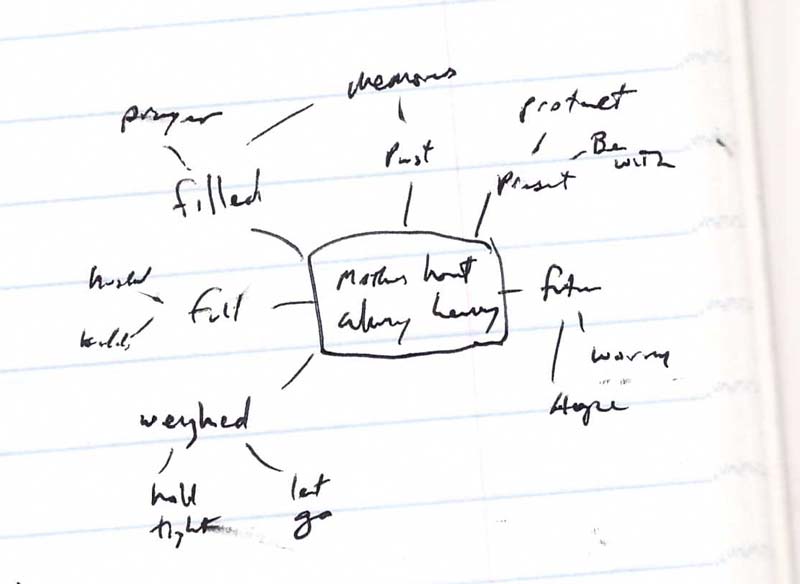 memories
prayer
protect
Past
Be
with
Present
filled
Mothers heart
always heavy
future
full
worry
Hope
weighed
hold
tight
let
go